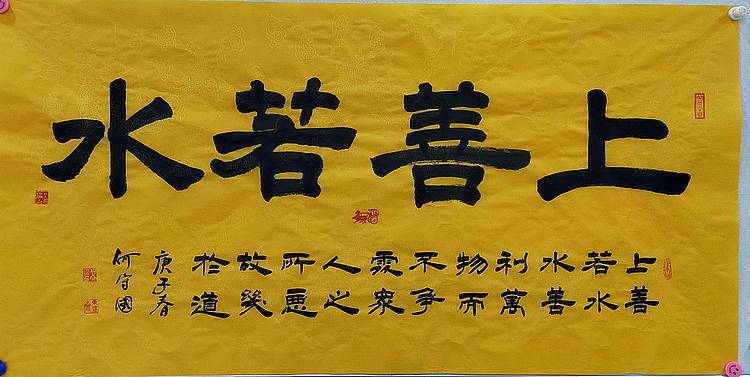 上善若水
上善
若水
水善
利萬
物而
不争
處衆
人之
所惡
故幾
於道
庚子春
何守國